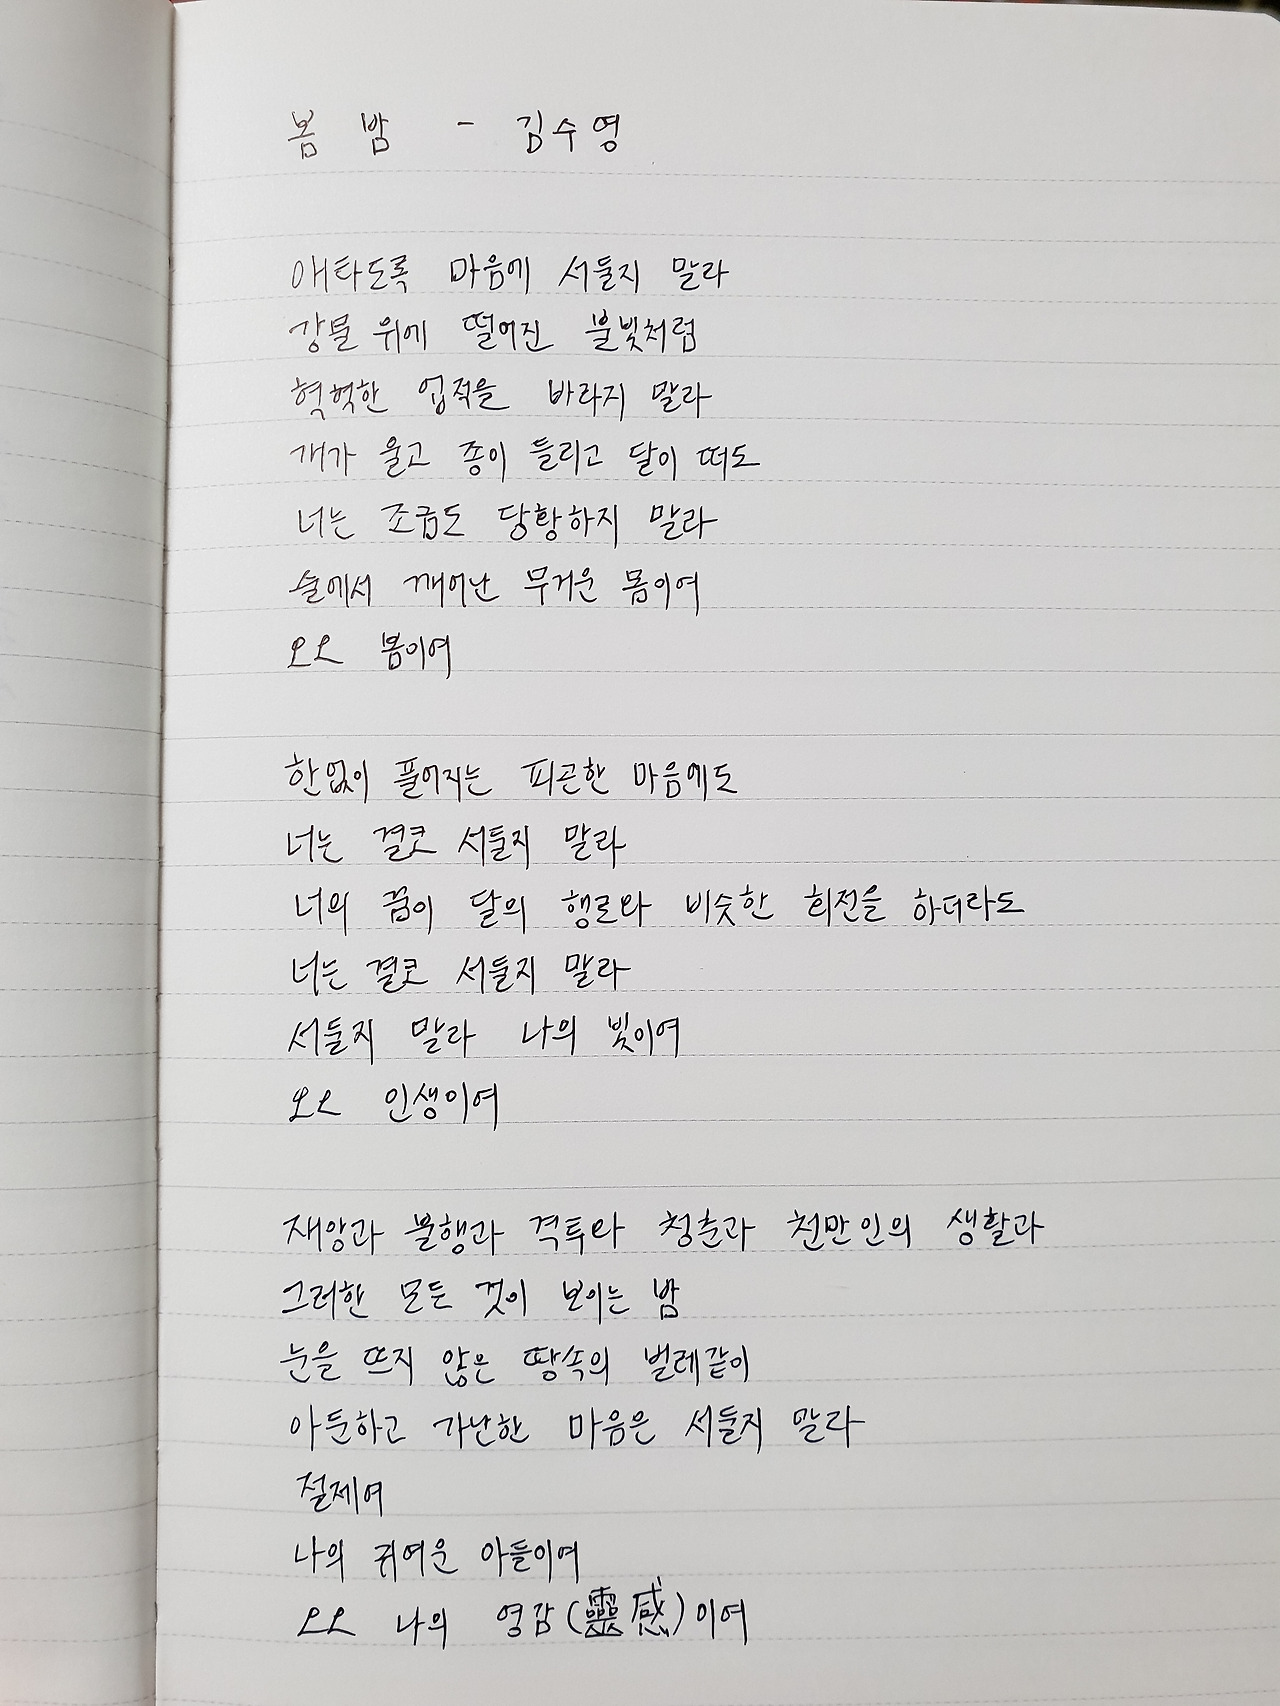 봄 밤 - 김수영
애타도록 마음에 서둘지 말라
강물 위에 떨어진 불빛처럼
혁혁한 업적을 바라지 말라
개가 울고 종이 들리고 달이 떠도
너는 조금도 당황하지 말라
술에서 깨어난 무거운 몸이여
오오 봄이여
한없이 풀어지는 피곤한 마음에도
너는 결코 서둘지 말라
너의 꿈이 달의 행로와 비슷한 회전을 하더라도
너는 결코 서둘지 말라
서둘지 말라 나의 빛이여
오오 인생이여
재앙과 불행과 격투와 청춘과 천만인의 생활과
그러한 모든 것이 보이는 밤
눈을 뜨지 않은 땅속의 벌레같이
아둔하고 가난한 마음은 서둘지 말라
절제여
나의 귀여운 아들이여
오오 나의 영감(靈感)이여